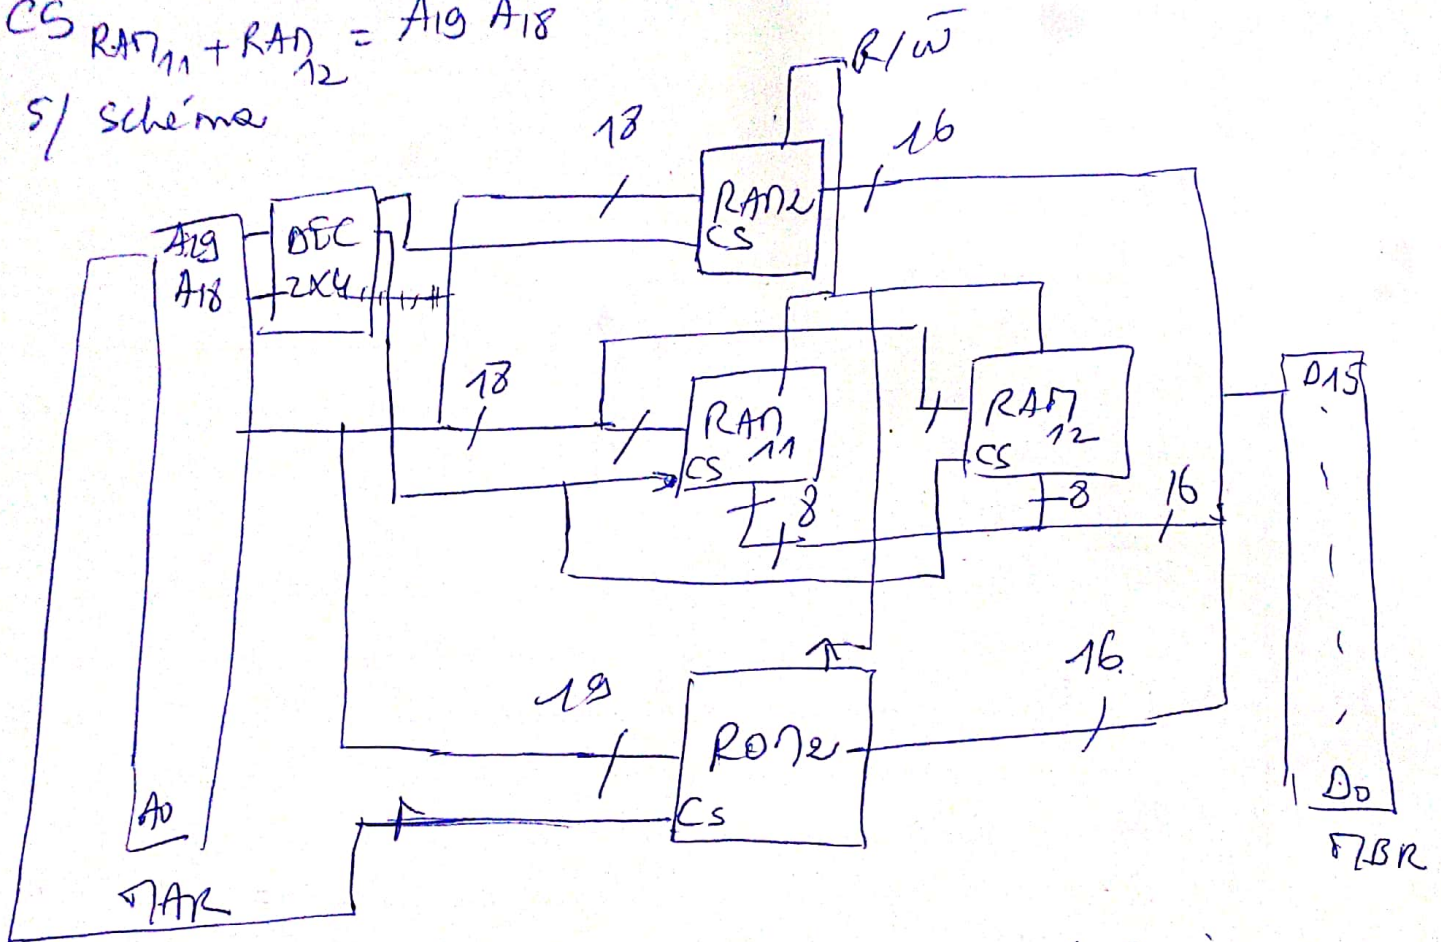 CS RAM11 + RAM12 = A19 A18
5/ Schéma
R/W̅
18
16
A19
A18
DEC
2x4
RAM2
CS
18
RAM
11
CS
8
RAM
12
CS
8
16
D15
19
16
ROM2
CS
A0
D0
MAR
MBR